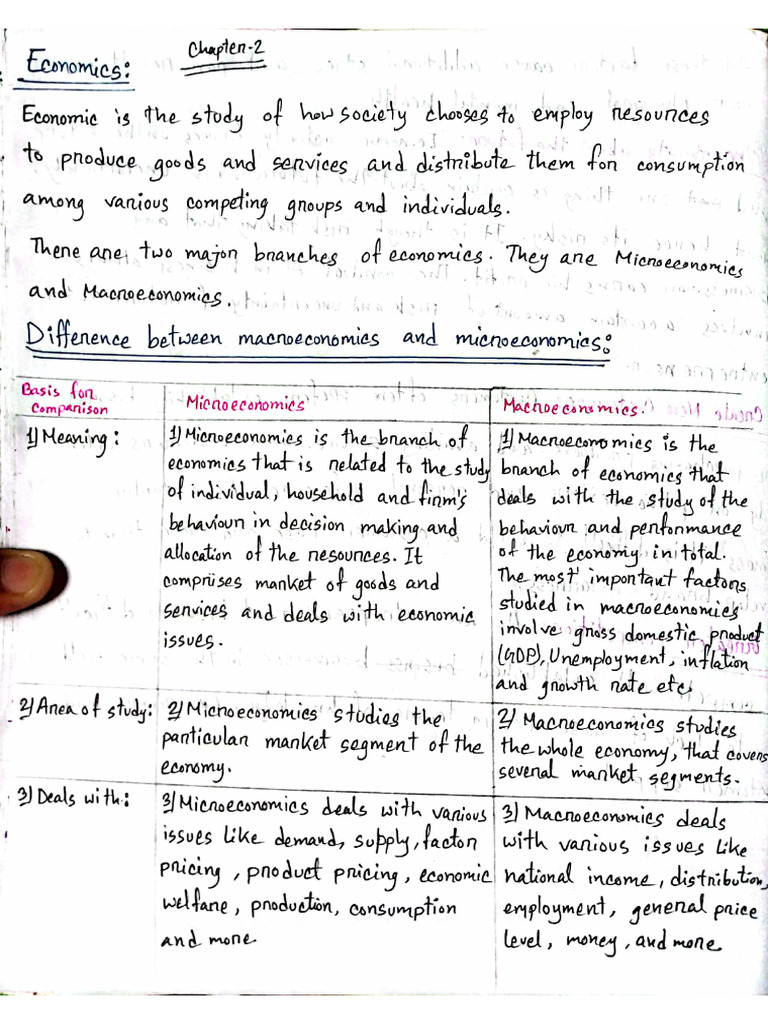 Chapter-2
Economics:
Economic is the study of how society chooses to employ resources
to produce goods and services and distribute them for consumption
among various competing groups and individuals.
There are two major branches of economics. They are Microeconomics
and Macroeconomics.
Difference between macroeconomics and microeconomics:
Basis for
comparison
Microeconomics
Macroeconomics.
1) Meaning:
1) Microeconomics is the branch of
economics that is related to the study
of individual, household and firm's
behaviour in decision making and
allocation of the resources. It
comprises market of goods and
services and deals with economic
issues.
1) Macroeconomics is the
branch of economics that
deals with the study of the
behaviour and performance
of the economy in total.
The most important factors
studied in macroeconomics
involve gross domestic product
(GDP), Unemployment, inflation
and growth rate etc.
2) Area of study:
2) Microeconomics studies the
particular market segment of the
economy.
2) Macroeconomics studies
the whole economy, that covers
several market segments.
3) Deals with:
3) Microeconomics deals with various
issues like demand, supply, factor
pricing, product pricing, economic
welfare, production, consumption
and more.
3) Macroeconomics deals
with various issues like
national income, distribution,
employment, general price
level, money, and more